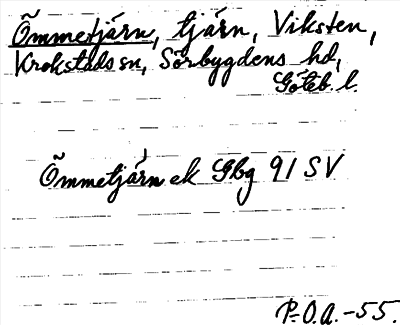 Õmmetjärn, tjärn, Viksten,
Krokstads sn, Sörbygdens hd,
Göteb. l.
Õmmetjärn ek Gbg 91 SV
P.O.A.-55.